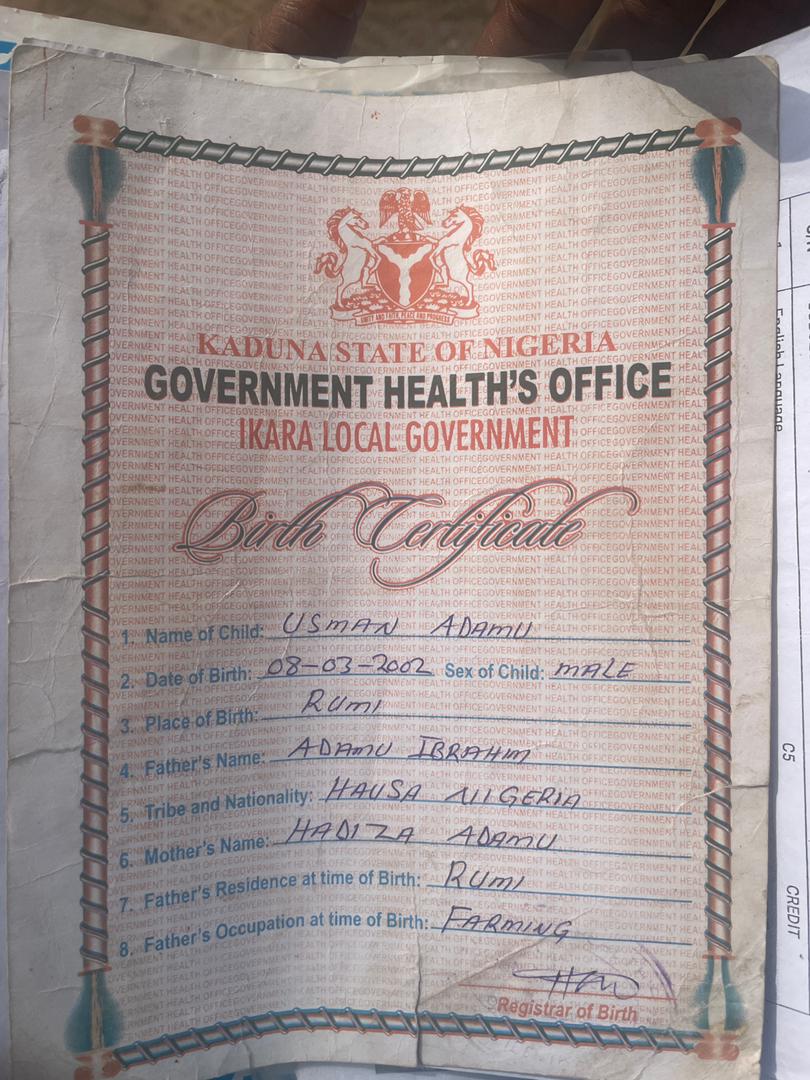 UNITY AND FAITH, PEACE AND PROGRESS
KADUNA STATE OF NIGERIA
GOVERNMENT HEALTH'S OFFICE
IKARA LOCAL GOVERNMENT
Birth Certificate
1. Name of Child: USMAN ADAMU
2. Date of Birth: 08-03-2002 Sex of Child: MALE
3. Place of Birth: RUMI
4. Father's Name: ADAMU IBRAHIM
5. Tribe and Nationality: HAUSA NIGERIA
6. Mother's Name: HADIZA ADAMU
7. Father's Residence at time of Birth: RUMI
8. Father's Occupation at time of Birth: FARMING
Registrar of Birth
English Language
C5
CREDIT